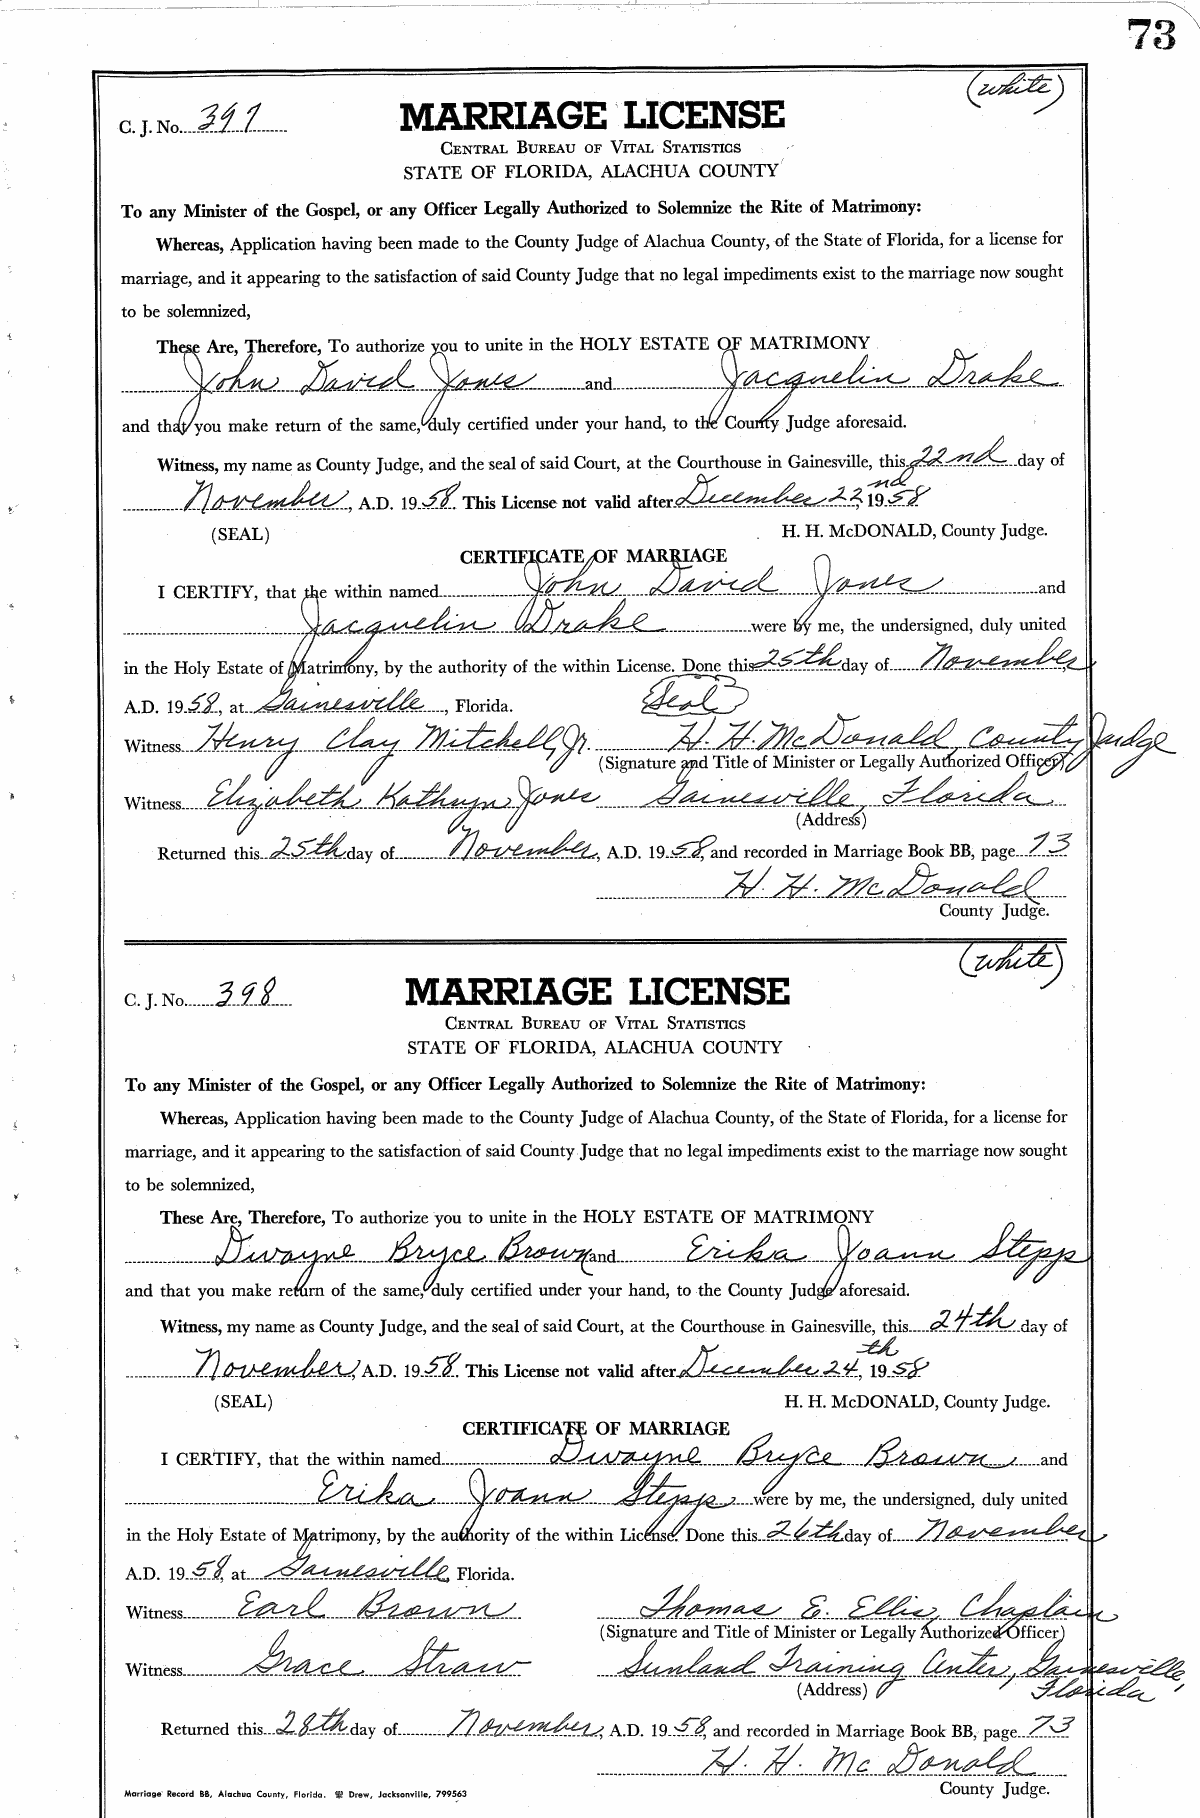 73
(white)
C. J. No. 397
MARRIAGE LICENSE
CENTRAL BUREAU OF VITAL STATISTICS
STATE OF FLORIDA, ALACHUA COUNTY
To any Minister of the Gospel, or any Officer Legally Authorized to Solemnize the Rite of Matrimony:
Whereas, Application having been made to the County Judge of Alachua County, of the State of Florida, for a license for
marriage, and it appearing to the satisfaction of said County Judge that no legal impediments exist to the marriage now sought
to be solemnized,
These Are, Therefore, To authorize you to unite in the HOLY ESTATE OF MATRIMONY
John David Jones and Jacquelin Drake
and that you make return of the same, duly certified under your hand, to the County Judge aforesaid.
Witness, my name as County Judge, and the seal of said Court, at the Courthouse in Gainesville, this 22nd day of
November, A.D. 1958. This License not valid after December 22nd, 1958
(SEAL) H. H. McDONALD, County Judge.
CERTIFICATE OF MARRIAGE
I CERTIFY, that the within named John David Jones and
Jacquelin Drake were by me, the undersigned, duly united
in the Holy Estate of Matrimony, by the authority of the within License. Done this 25th day of November,
A.D. 1958, at Gainesville, Florida. (Seal)
Witness Henry Clay Mitchell, Jr. H. H. McDonald, County Judge
(Signature and Title of Minister or Legally Authorized Officer)
Witness Elizabeth Kathryn Jones Gainesville, Florida
(Address)
Returned this 25th day of November, A.D. 1958, and recorded in Marriage Book BB, page 73
H. H. McDonald
County Judge.
(white)
C. J. No. 398
MARRIAGE LICENSE
CENTRAL BUREAU OF VITAL STATISTICS
STATE OF FLORIDA, ALACHUA COUNTY
To any Minister of the Gospel, or any Officer Legally Authorized to Solemnize the Rite of Matrimony:
Whereas, Application having been made to the County Judge of Alachua County, of the State of Florida, for a license for
marriage, and it appearing to the satisfaction of said County Judge that no legal impediments exist to the marriage now sought
to be solemnized,
These Are, Therefore, To authorize you to unite in the HOLY ESTATE OF MATRIMONY
Dwayne Bryce Brown and Erika Joann Stepp
and that you make return of the same, duly certified under your hand, to the County Judge aforesaid.
Witness, my name as County Judge, and the seal of said Court, at the Courthouse in Gainesville, this 24th day of
November, A.D. 1958. This License not valid after December 24th, 1958
(SEAL) H. H. McDONALD, County Judge.
CERTIFICATE OF MARRIAGE
I CERTIFY, that the within named Dwayne Bryce Brown, and
Erika Joann Stepp were by me, the undersigned, duly united
in the Holy Estate of Matrimony, by the authority of the within License. Done this 26th day of November
A.D. 1958, at Gainesville, Florida.
Witness Earl Brown Thomas E. Ellis, Chaplain
(Signature and Title of Minister or Legally Authorized Officer)
Witness Grace Straw Sunland Training Center, Gainesville,
(Address) Florida
Returned this 28th day of November, A.D. 1958, and recorded in Marriage Book BB, page 73
H. H. McDonald
County Judge.
Marriage Record BB, Alachua County, Florida. Drew, Jacksonville, 799563